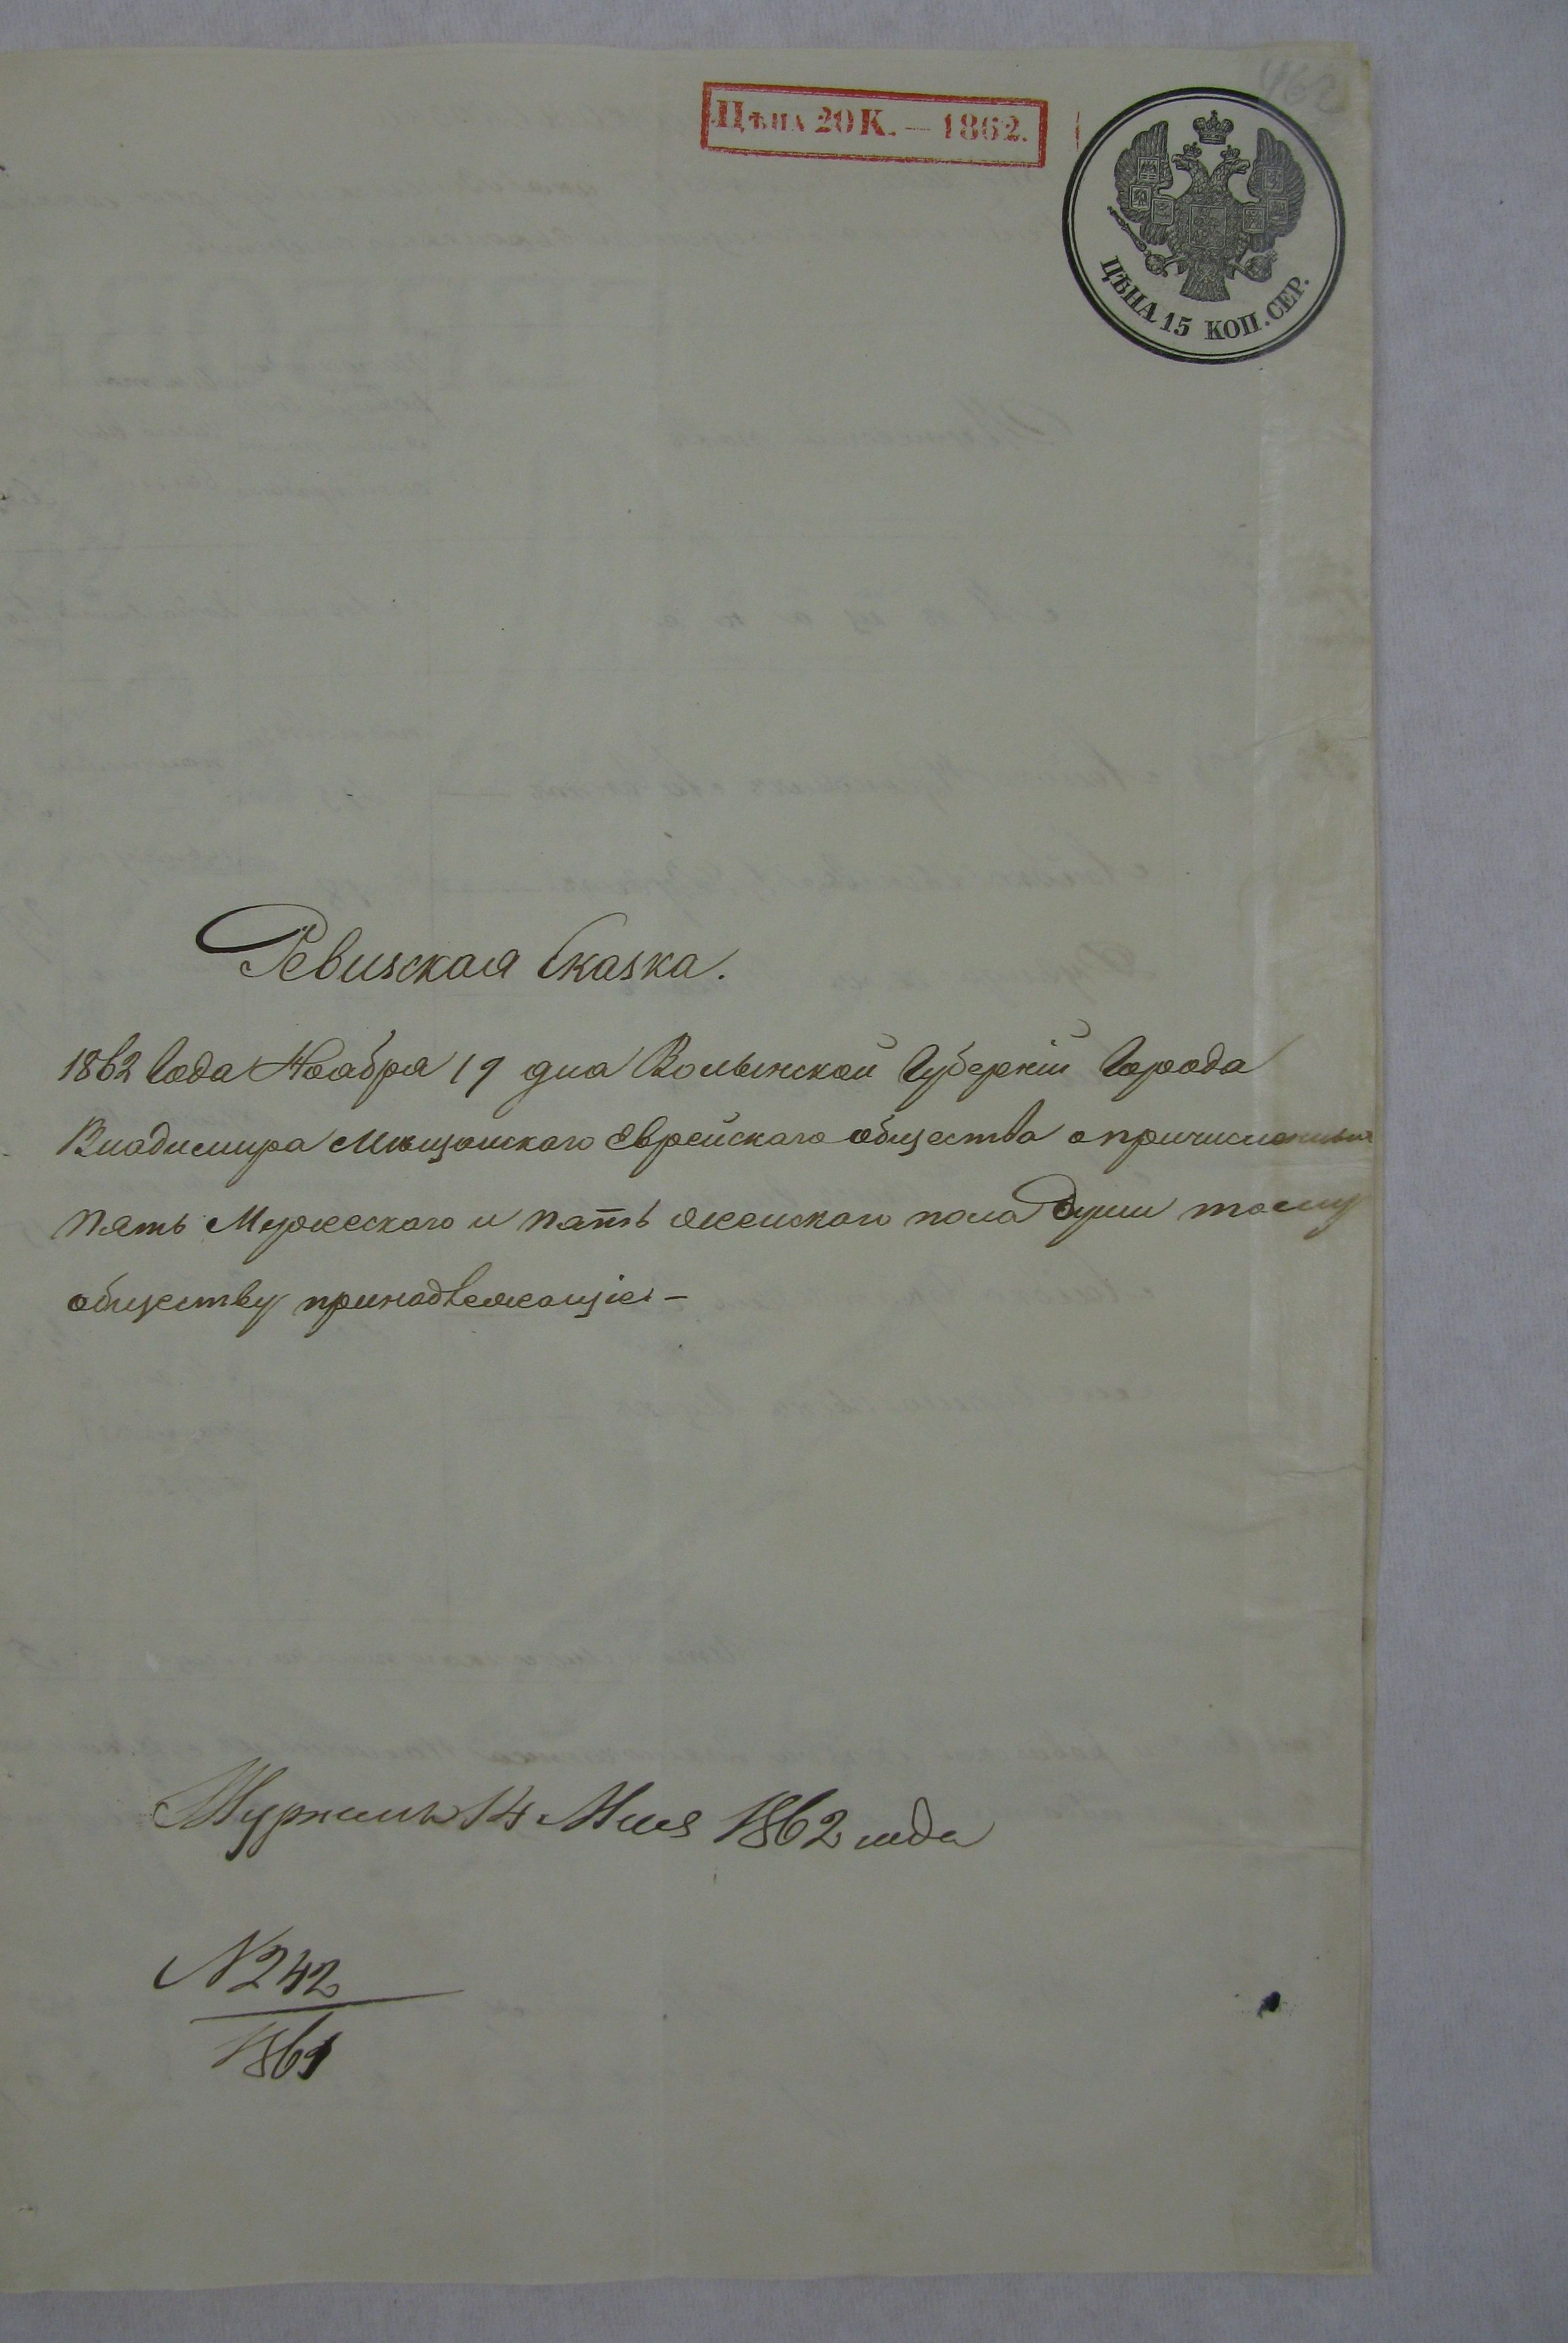 Цѣна 20 К. — 1862.
462
ЦѢНА 15 КОП. СЕР.
Ревизская Сказка.
1862 Года Ноабра 19 дна Волынской Губерніи Города
Владимира Мѣщанского Еврейскаго общества о причисленныхъ
пять Мужеского и пять женского пола души тому
обществу принадлежащіе. —
Журналъ 14 Мая 1862 года
N 242
1861